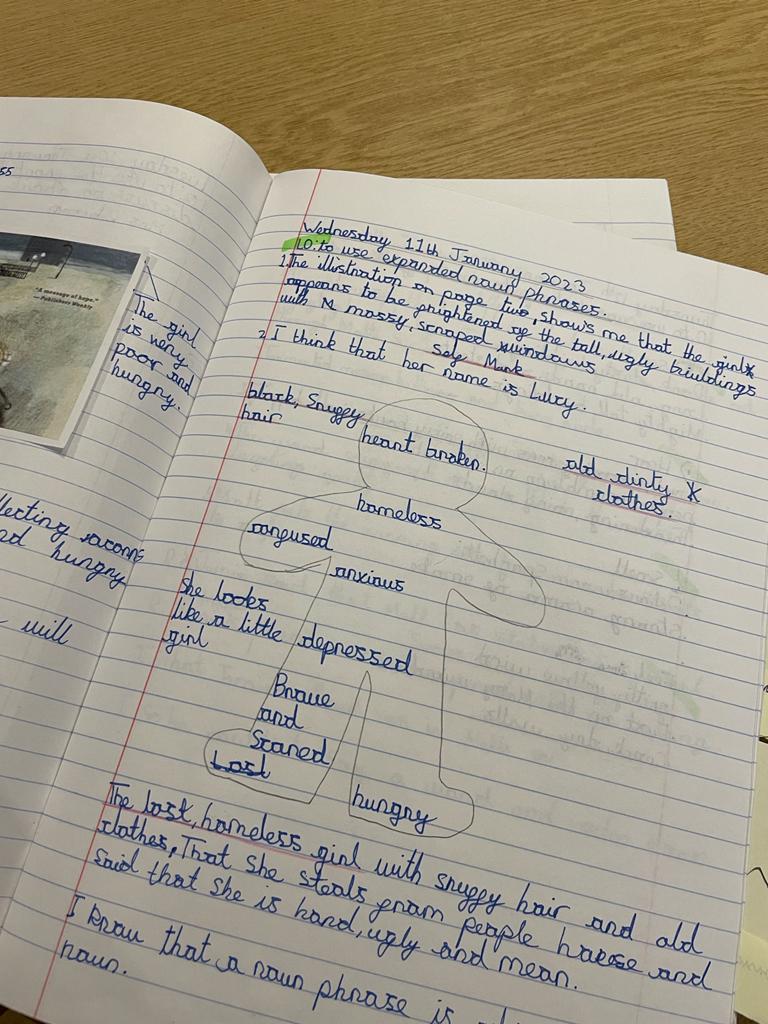 55
"A message of hope."
—Publishers Weekly
The girl
is very
poor and
hungry.
llecting
nd hungry
will
Wednesday 11th January 2023
LO: to use expanded noun phrases.
1. The illustration on page two, shows me that the girl
appears to be frightened of the tall, ugly buildings
with mossy, scraped windows
Self Mark
2 I think that her name is Lucy.
black, Snuggy
hair
heart broken.
old dirty
clothes.
homeless
congused
anxious
She looks
like a little depressed
girl
Brave
and
Scared
Lost
hungry
The lost, homeless girl with snuggy hair and old
clothes, That she steals from people and
said that she is hard, ugly and mean.
I know that a noun phrase is
noun.